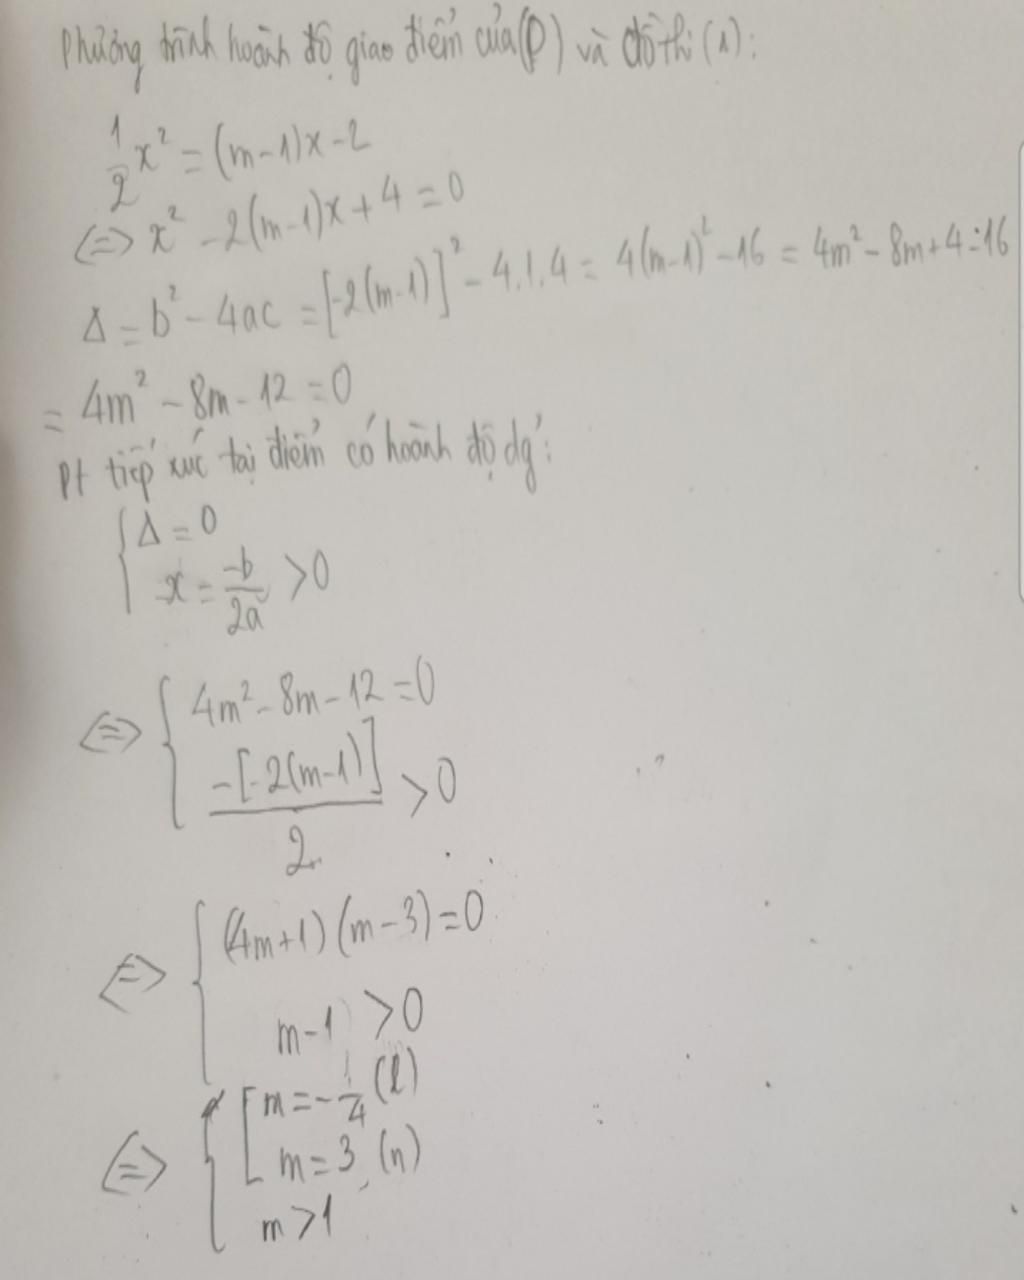 Phương trình hoành độ giao điểm của (P) và đồ thị (1):
1/2 x² = (m-1)x-2
<=> x² - 2(m-1)x + 4 = 0
Δ = b² - 4ac = [-2(m-1)]² - 4.1.4 = 4(m-1)² - 16 = 4m² - 8m + 4 - 16
= 4m² - 8m - 12 = 0
Pt tiếp xúc tại điểm có hoành độ dg':
{ Δ = 0
x = -b/2a > 0
<=> { 4m² - 8m - 12 = 0
-[-2(m-1)]/2 > 0
<=> { (4m+1)(m-3) = 0
m-1 > 0
<=> { [ m = -1/4 (l)
m = 3 (n)
m > 1